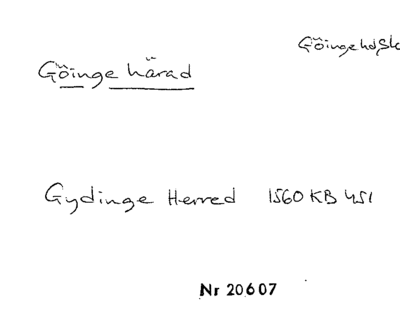 Göinge hd, Sk
Göinge härad
Gydinge Herred 1560 KB 451
Nr 20607